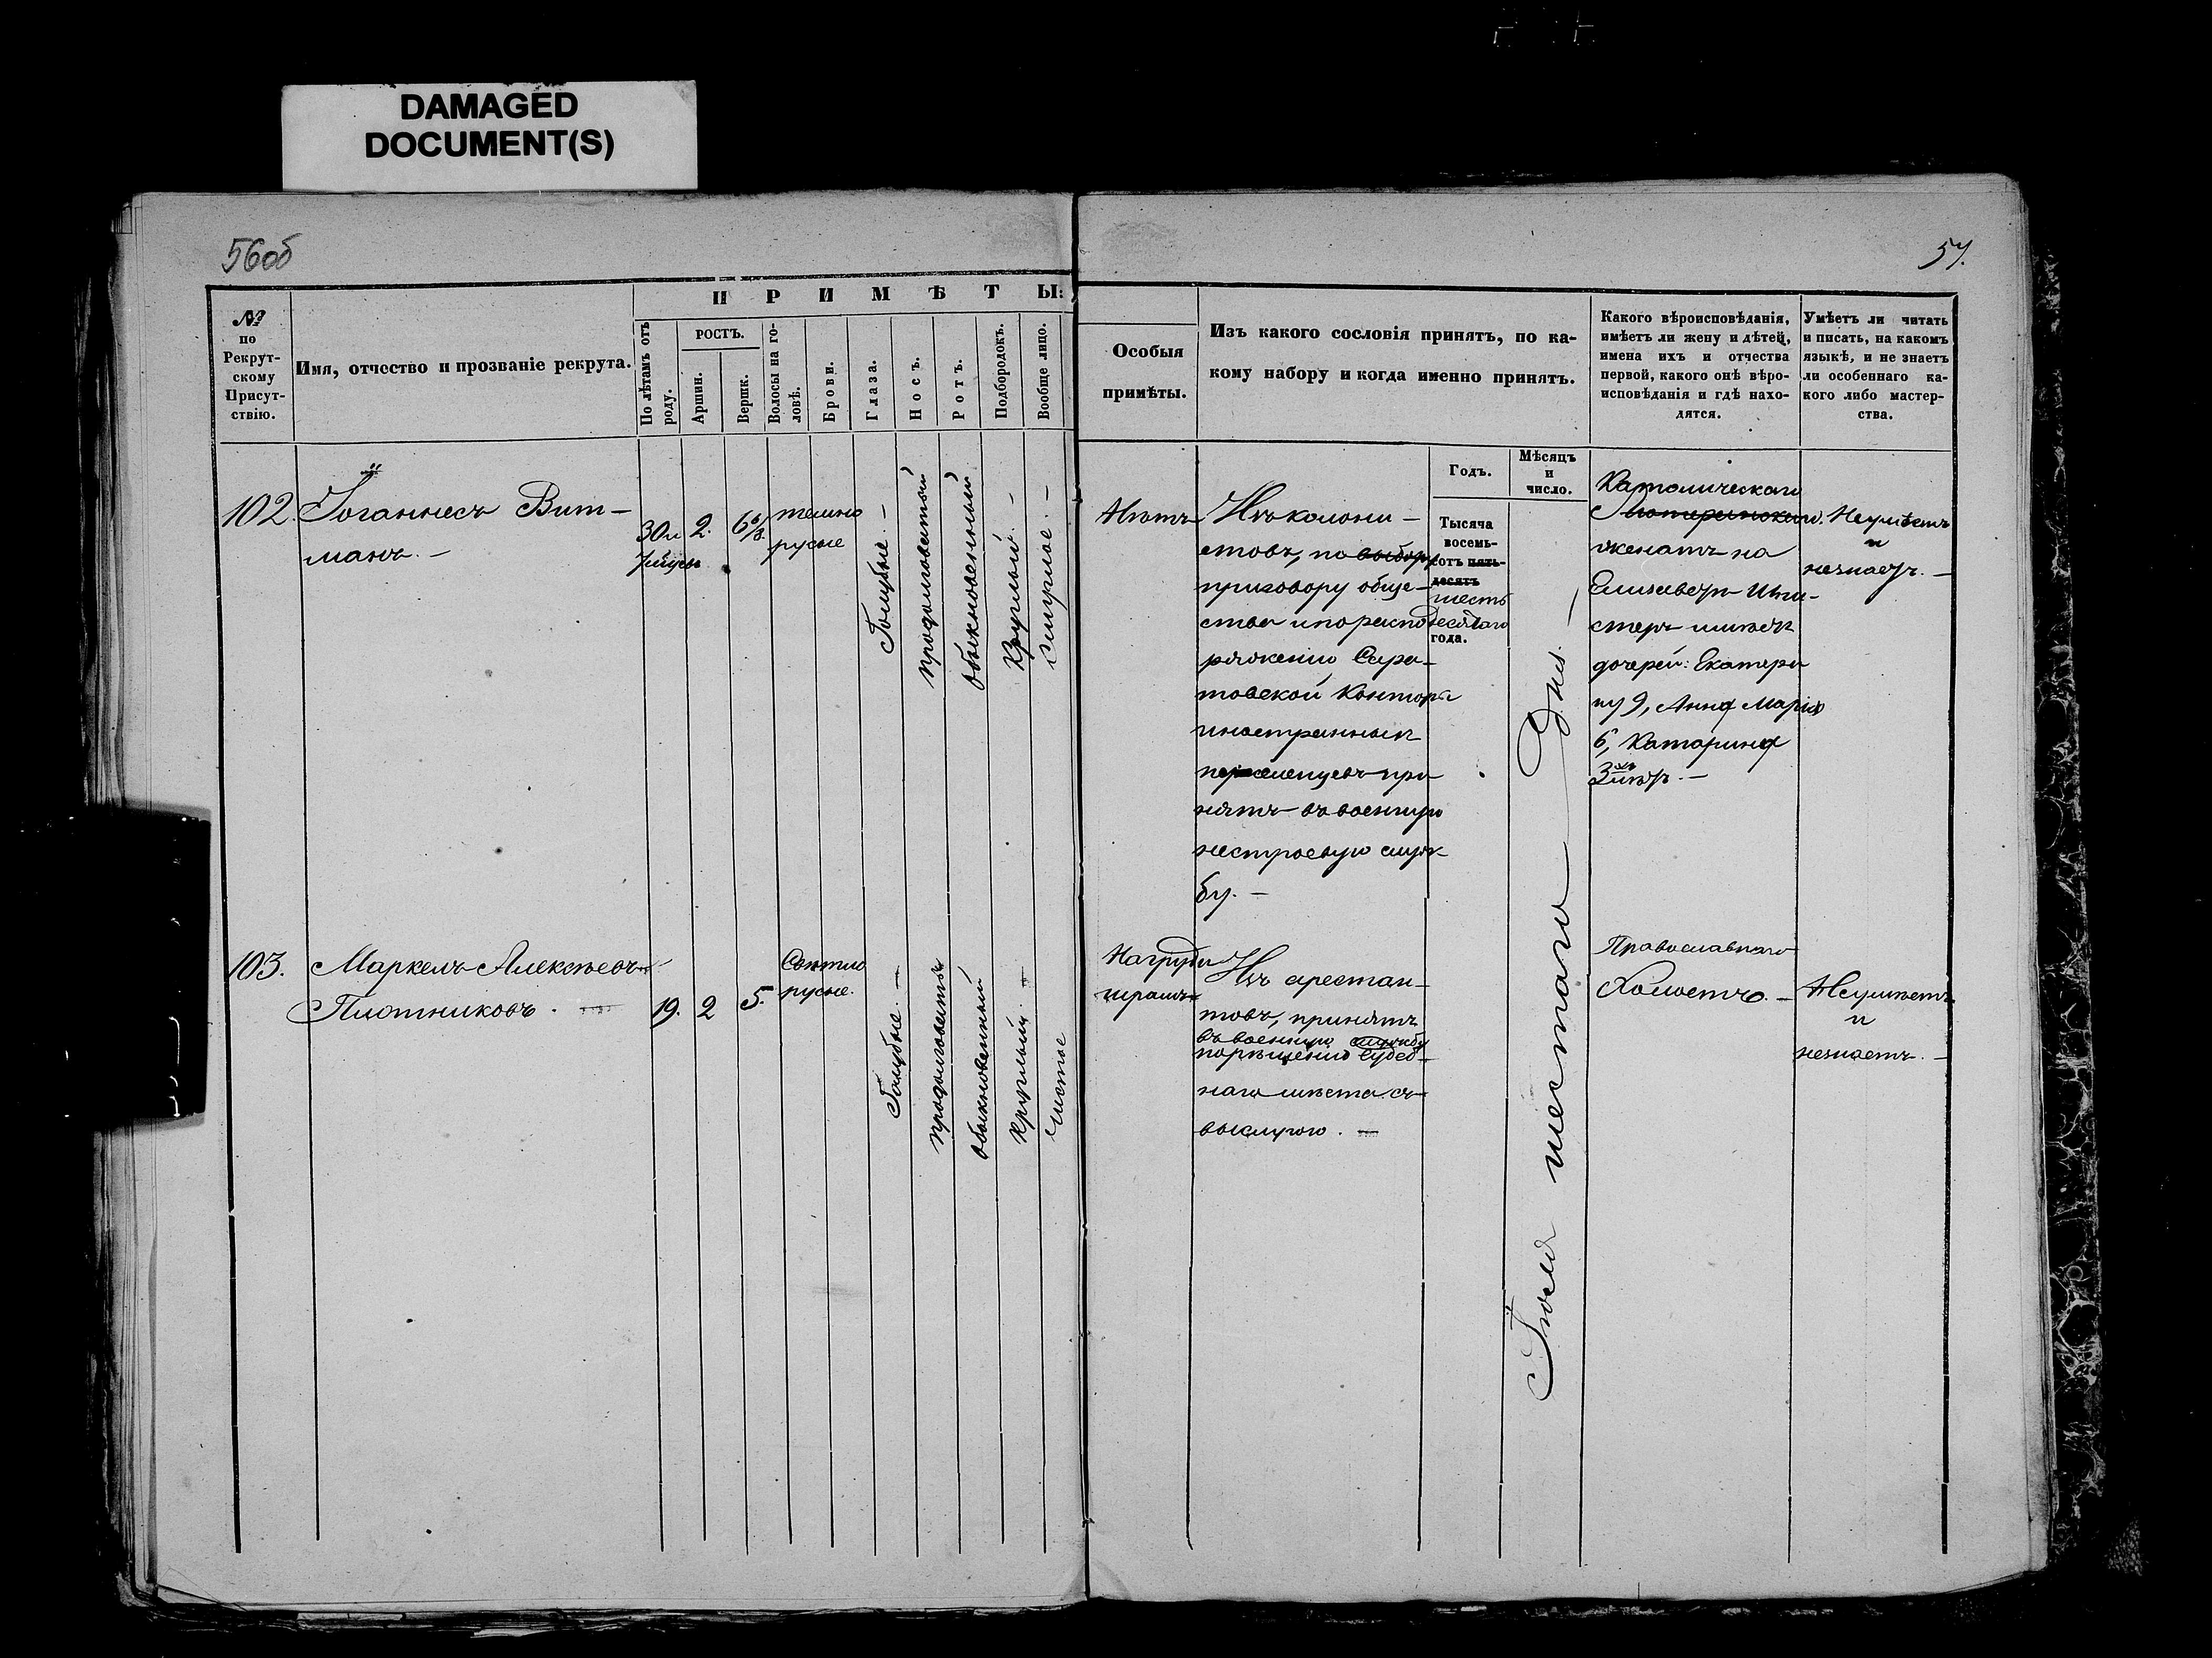 DAMAGED
DOCUMENT(S)
56об
57.
№
по
Рекрут-
скому
Присут-
ствію.
Имя, отчество и прозваніе рекрута.
ПРИМѢТЫ:
По лѣтамъ отъ
роду.
РОСТЪ.
Аршин.
Вершк.
Волосы на го-
ловѣ.
Брови.
Глаза.
Носъ.
Ротъ.
Подбородокъ.
Вообще лицо.
Особыя
примѣты.
Изъ какого сословія принятъ, по ка-
кому набору и когда именно принятъ.
Какого вѣроисповѣданія,
имѣетъ ли жену и дѣтей,
имена ихъ и отчества
первой, какого онѣ вѣро-
исповѣданія и гдѣ нахо-
дятся.
Умѣетъ ли читать
и писать, на какомъ
языкѣ, и не знаетъ
ли особеннаго ка-
кого либо мастер-
ства.
Годъ.
Мѣсяцъ
и
число.
102.
Іоганнесъ Вит-
манъ. -
30 и
7 мѣсяц
2.
6 6/8.
темно
русые
Голубые. -
продолговатый
обыкновенный
Круглый. -
смуглое. -
Нѣтъ
Изъ колони-
стовъ, по выбору
приговору обще-
ства и по распо
ряженію Сара-
товской Конторы
иностранныхъ
переселенцевъ при
нятъ въ военную
нестроевую служ
бу. -
Тысяча
восемь-
сотъ пять-
десятъ
шесть
десятаго
года.
Іюля шестаго дня. -
Католическаго
Лютеранскаго.
женатъ на
Елизаветѣ
дочерей: Екатери
ну 9, Анна Марія
6, Катарина
3хъ
лѣтъ. -
Неумѣетъ
и
незнаетъ. -
103.
Маркелъ Алексѣевъ
Плотниковъ. -
19.
2
5.
Свѣтло
русые.
Голубые. -
продолговатый
обыкновенный
круглый. -
чистое
На груди
шрамъ
Изъ арестан-
товъ, принятъ
въ военную службу
по рѣшенію судеб-
наго мѣста съ
выключкою. -
Православнаго
Холостъ. -
Неумѣетъ
и
незнаетъ. -